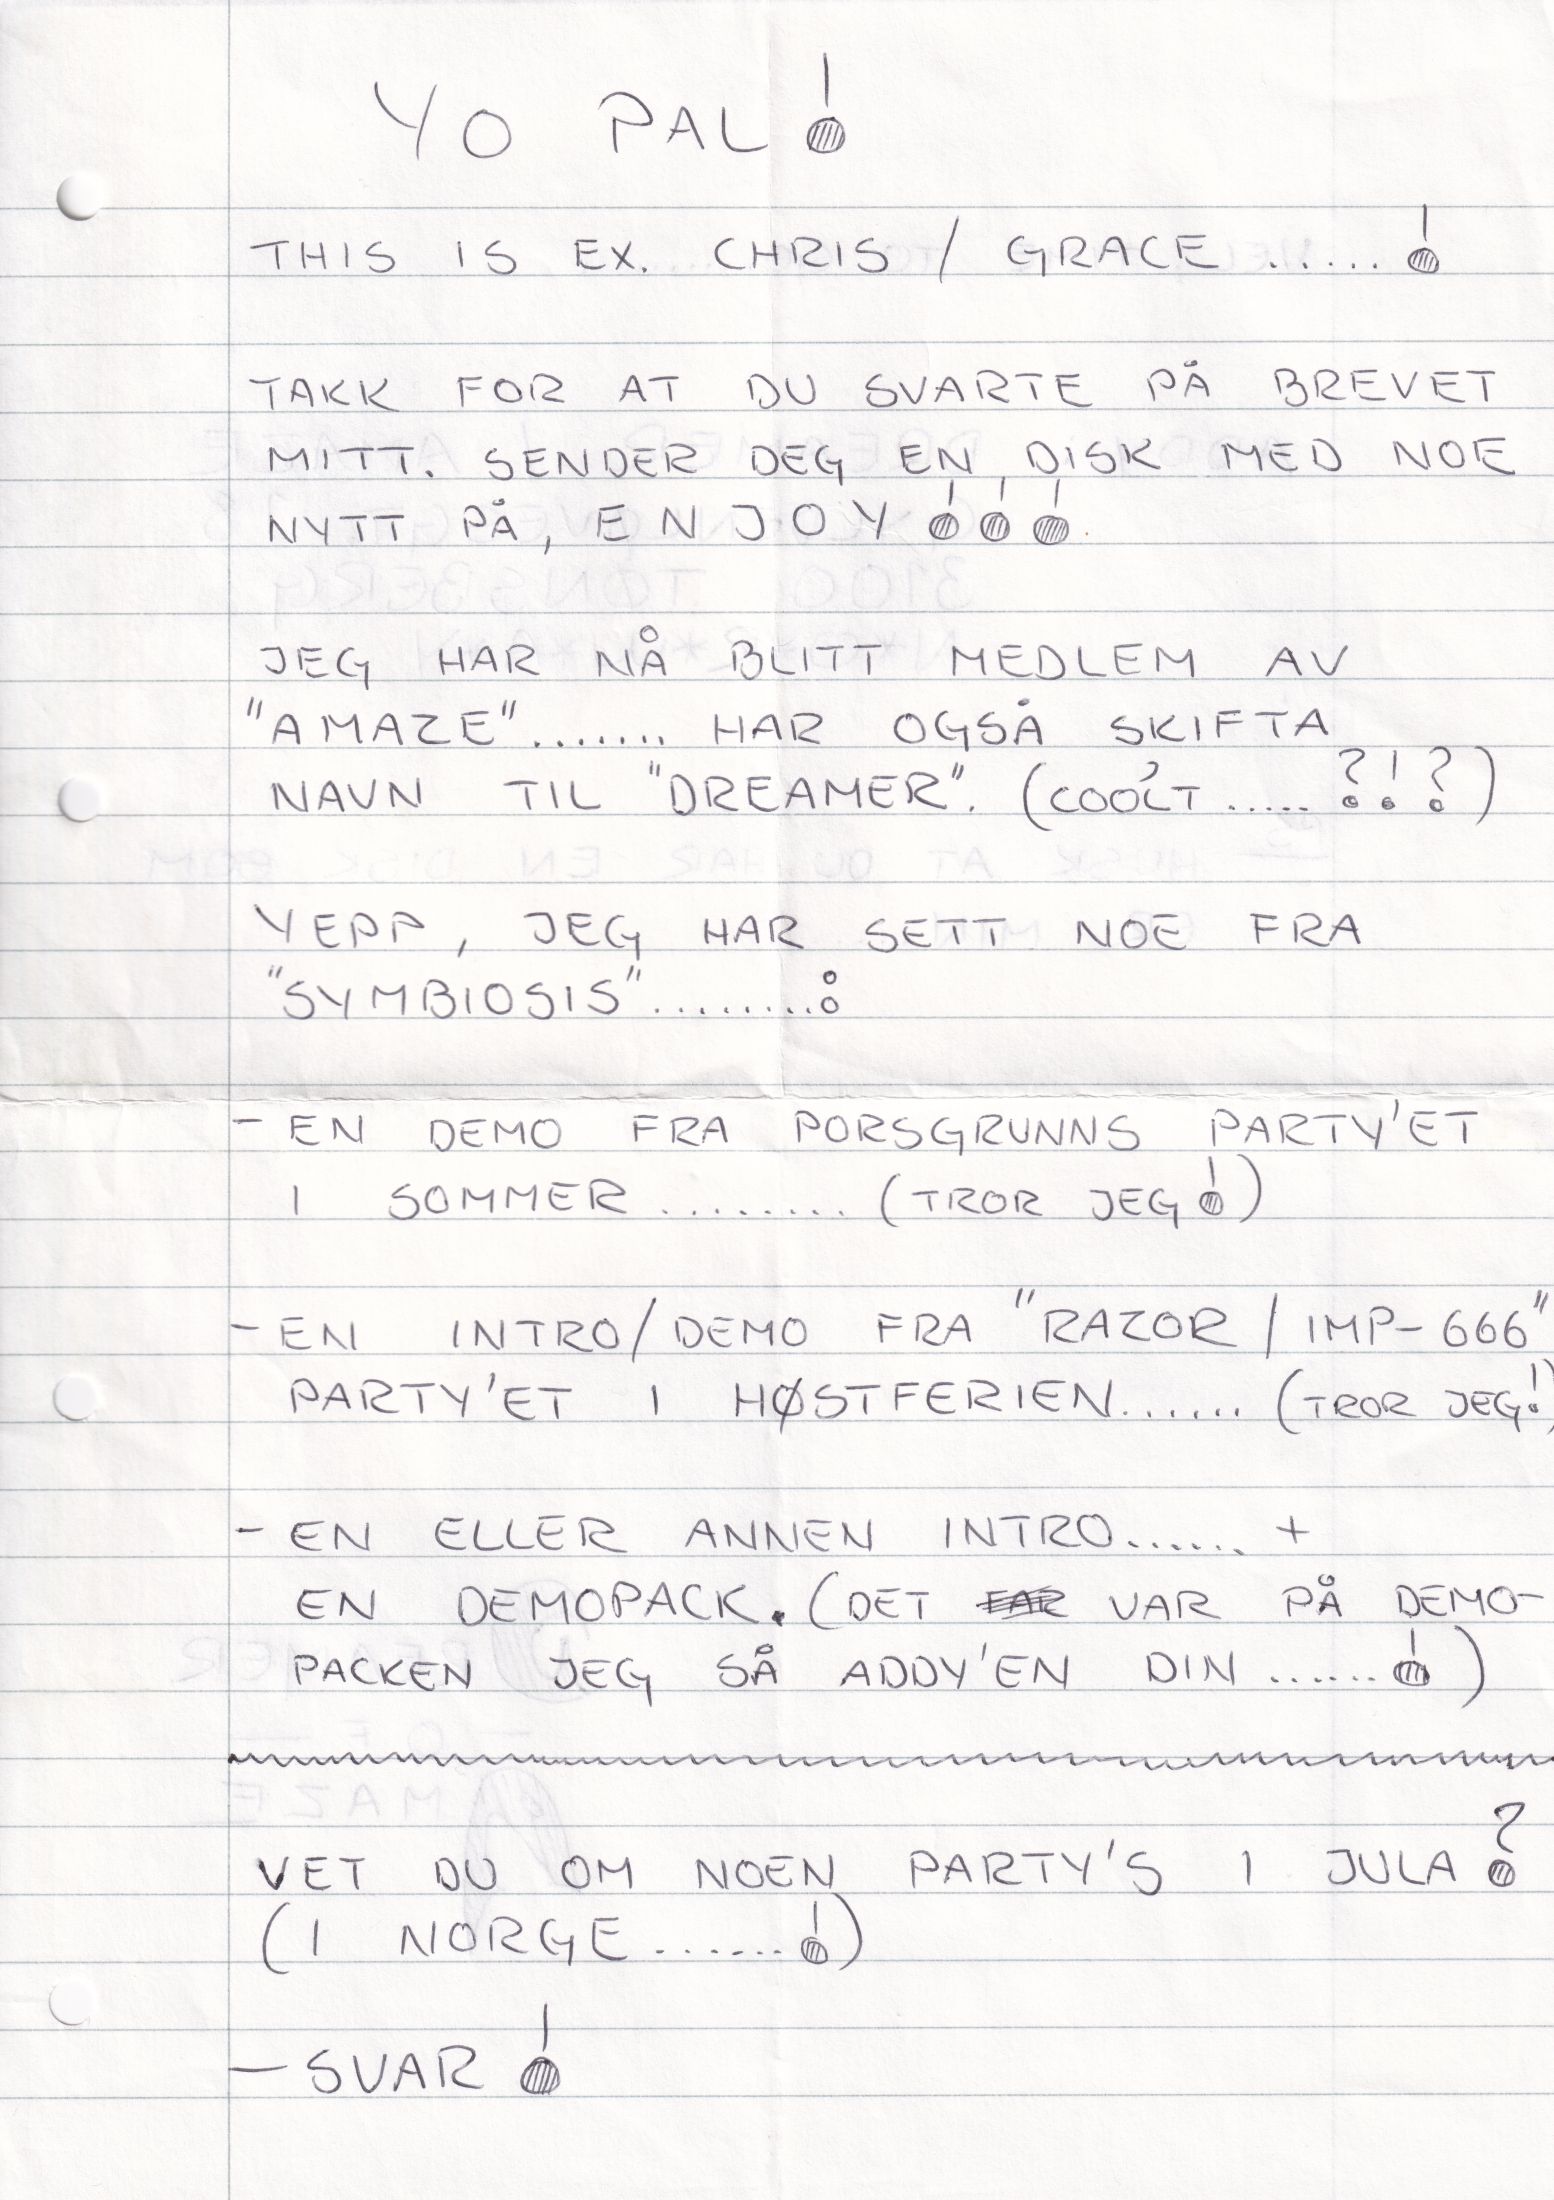 YO PAL!
THIS IS EX. CHRIS / GRACE .....!
TAKK FOR AT DU SVARTE PÅ BREVET
MITT. SENDER DEG EN DISK MED NOE
NYTT PÅ, ENJOY!!!
JEG HAR NÅ BLITT MEDLEM AV
"AMAZE"....... HAR OGSÅ SKIFTA
NAVN TIL "DREAMER". (COOL'T ..... ?!?)
YEPP, JEG HAR SETT NOE FRA
"SYMBIOSIS"........:
- EN DEMO FRA PORSGRUNNS PARTY'ET
I SOMMER ........ (TROR JEG!)
- EN INTRO/DEMO FRA "RAZOR / IMP-666"
PARTY'ET I HØSTFERIEN...... (TROR JEG!)
- EN ELLER ANNEN INTRO...... +
EN DEMOPACK. (DET VAR PÅ DEMO-
PACKEN JEG SÅ ADDY'EN DIN ......!)
VET DU OM NOEN PARTY'S I JULA?
(I NORGE.......!)
- SVAR!